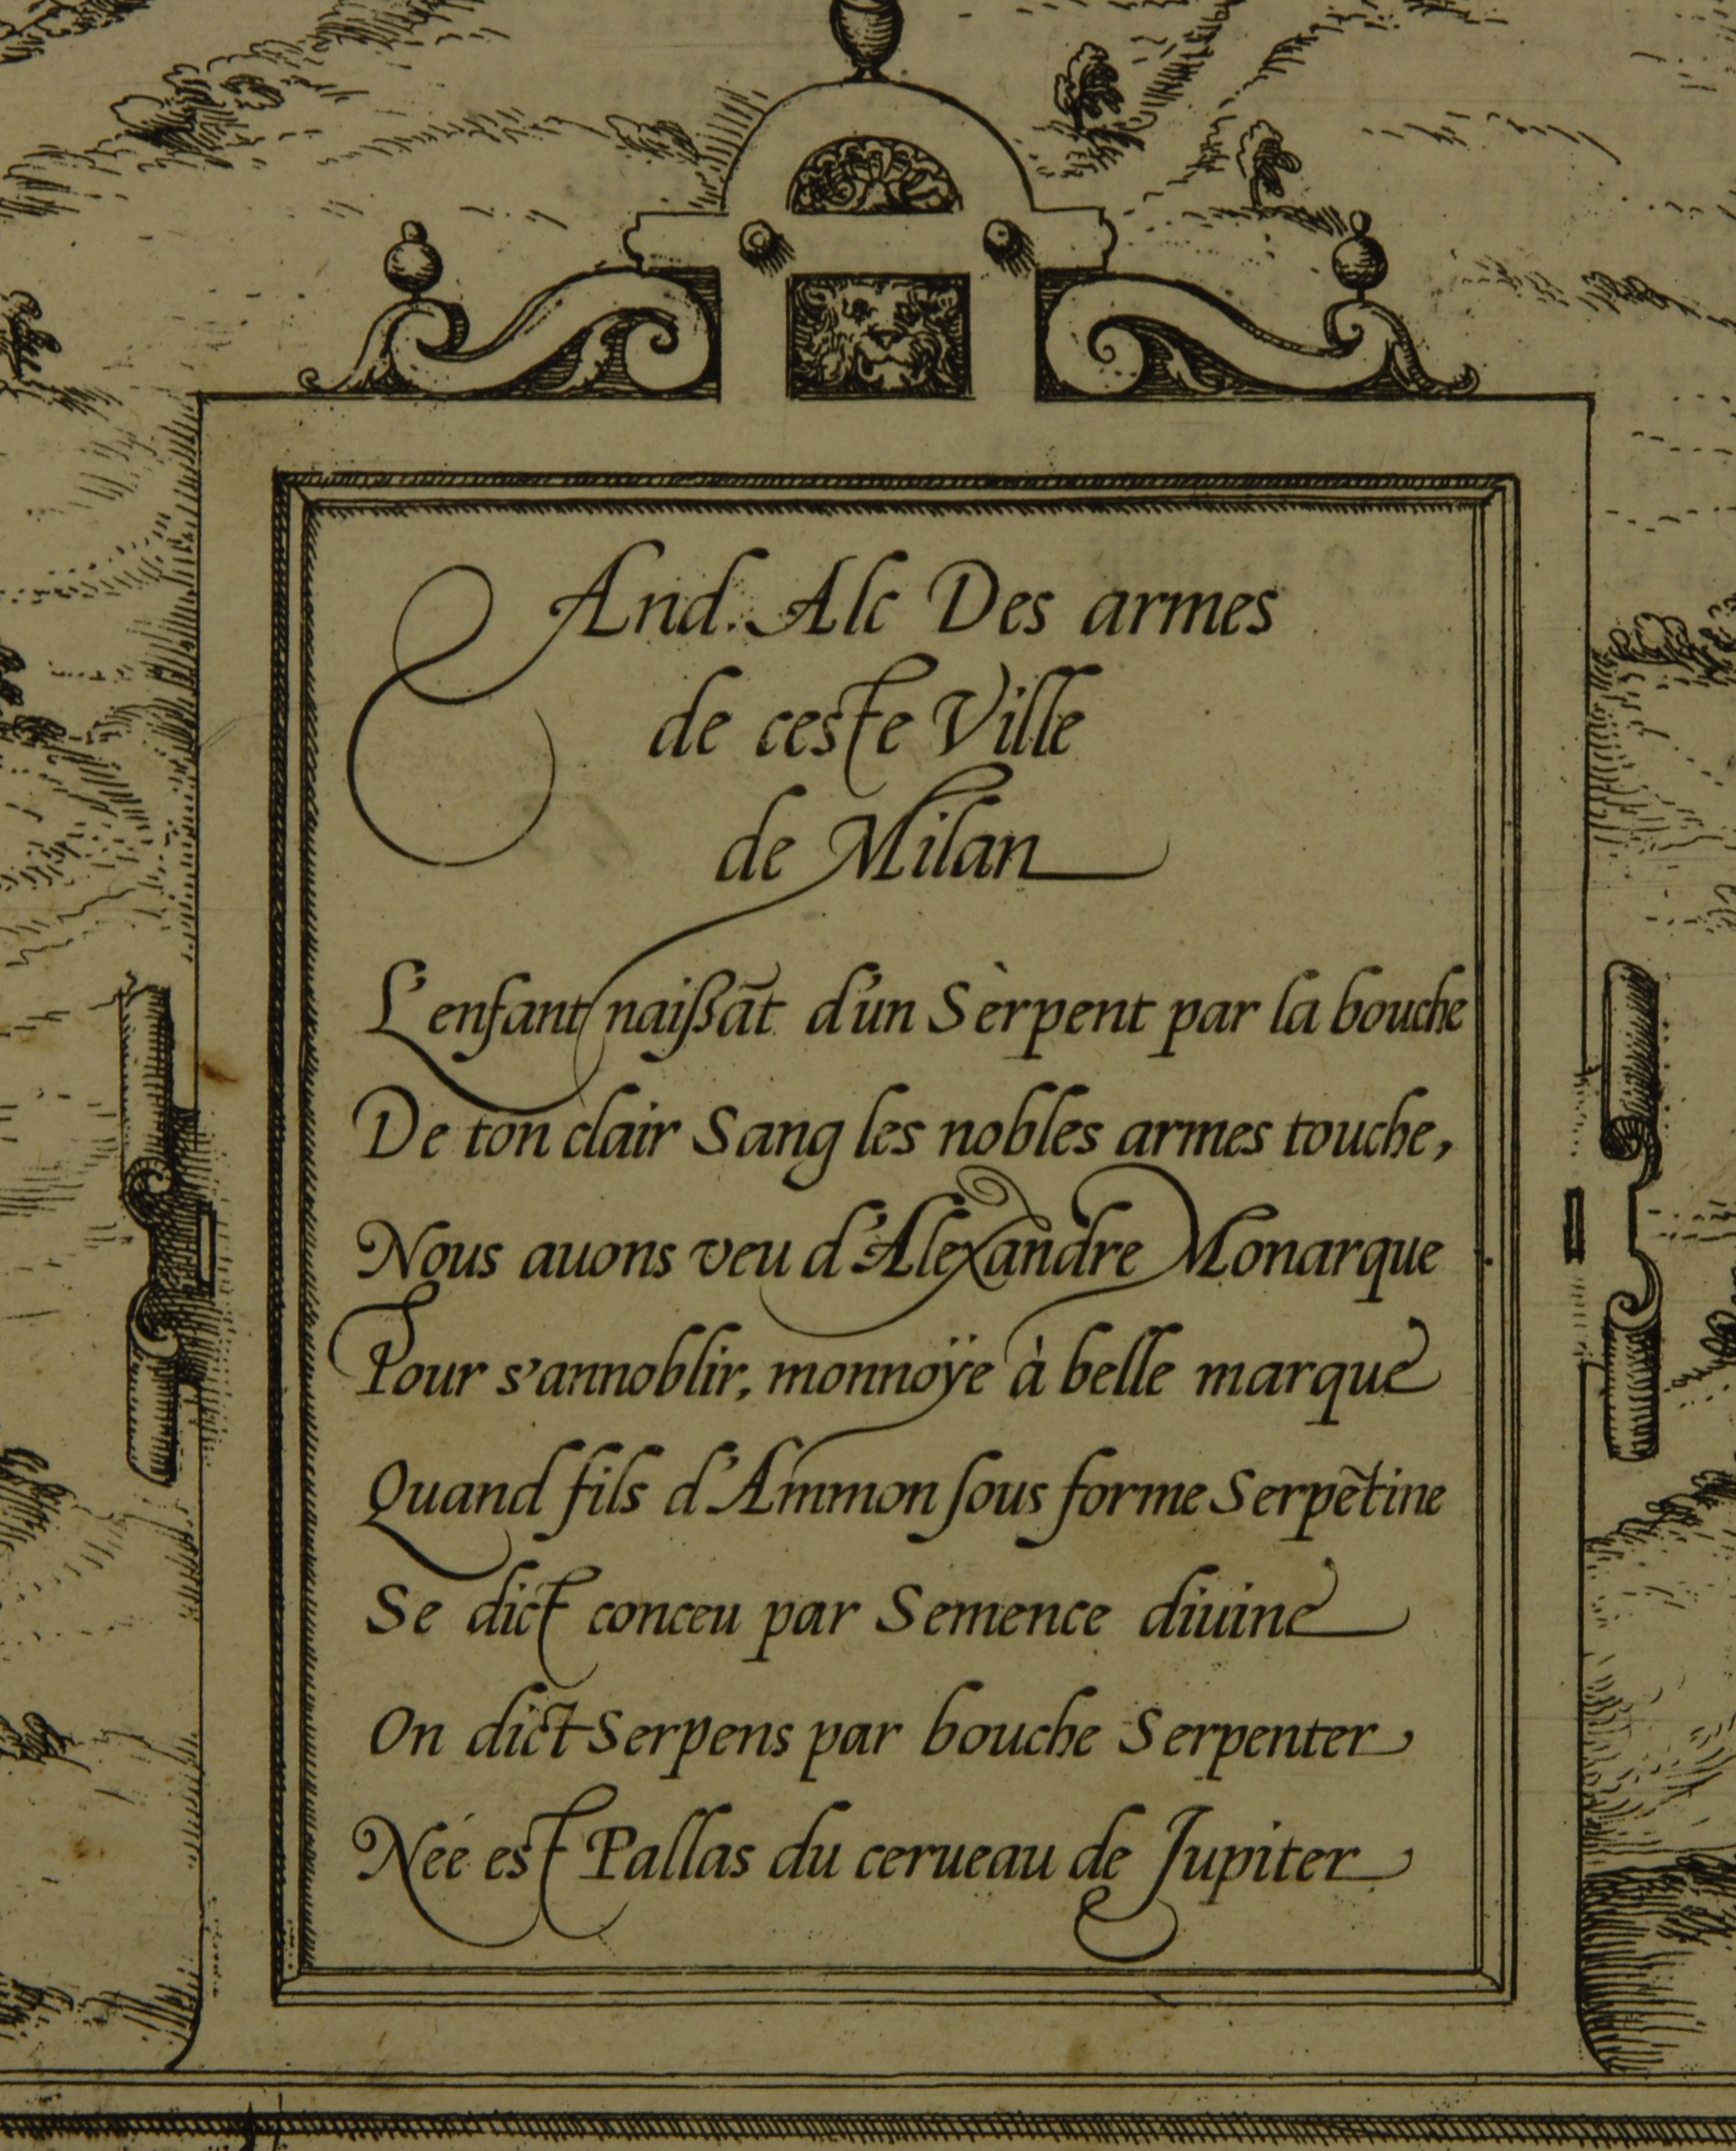 And. Alc Des armes
de ceste Ville
de Milan
L'enfant naißāt d'un Sèrpent par la bouche
De ton clair Sang les nobles armes touche,
Nous auons veu d'Alexandre Monarque
Pour s'annoblir, monnoÿe à belle marque
Quand fils d'Ammon ſous forme Serpẽtine
Se dict conceu par Semence diuine
On dict Serpens par bouche Serpenter
Neé est Pallas du cerueau de Jupiter